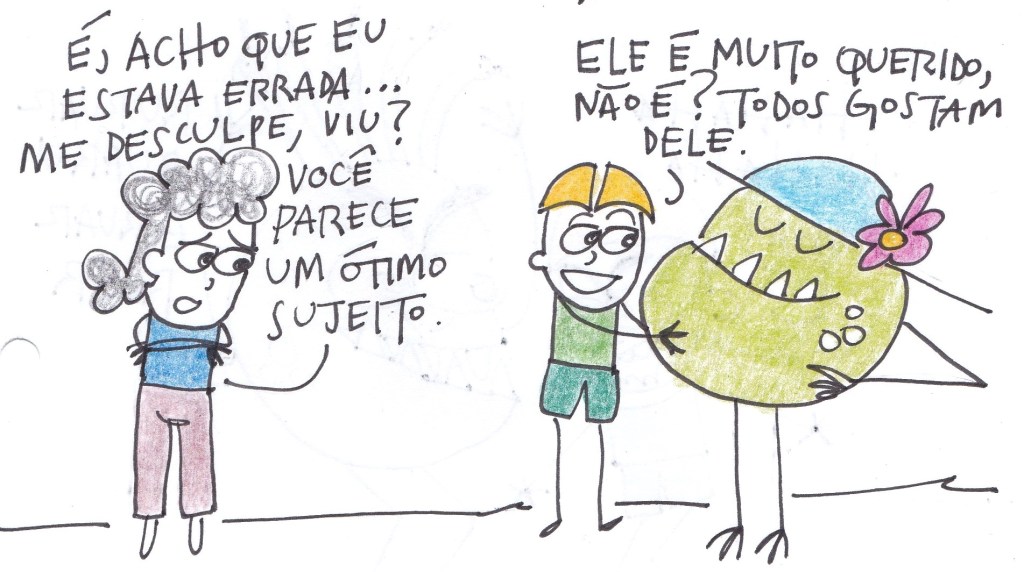 É, ACHO QUE EU
ESTAVA ERRADA...
ME DESCULPE, VIU?
VOCÊ
PARECE
UM ÓTIMO
SUJEITO.
ELE É MUITO QUERIDO,
NÃO É? TODOS GOSTAM
DELE.